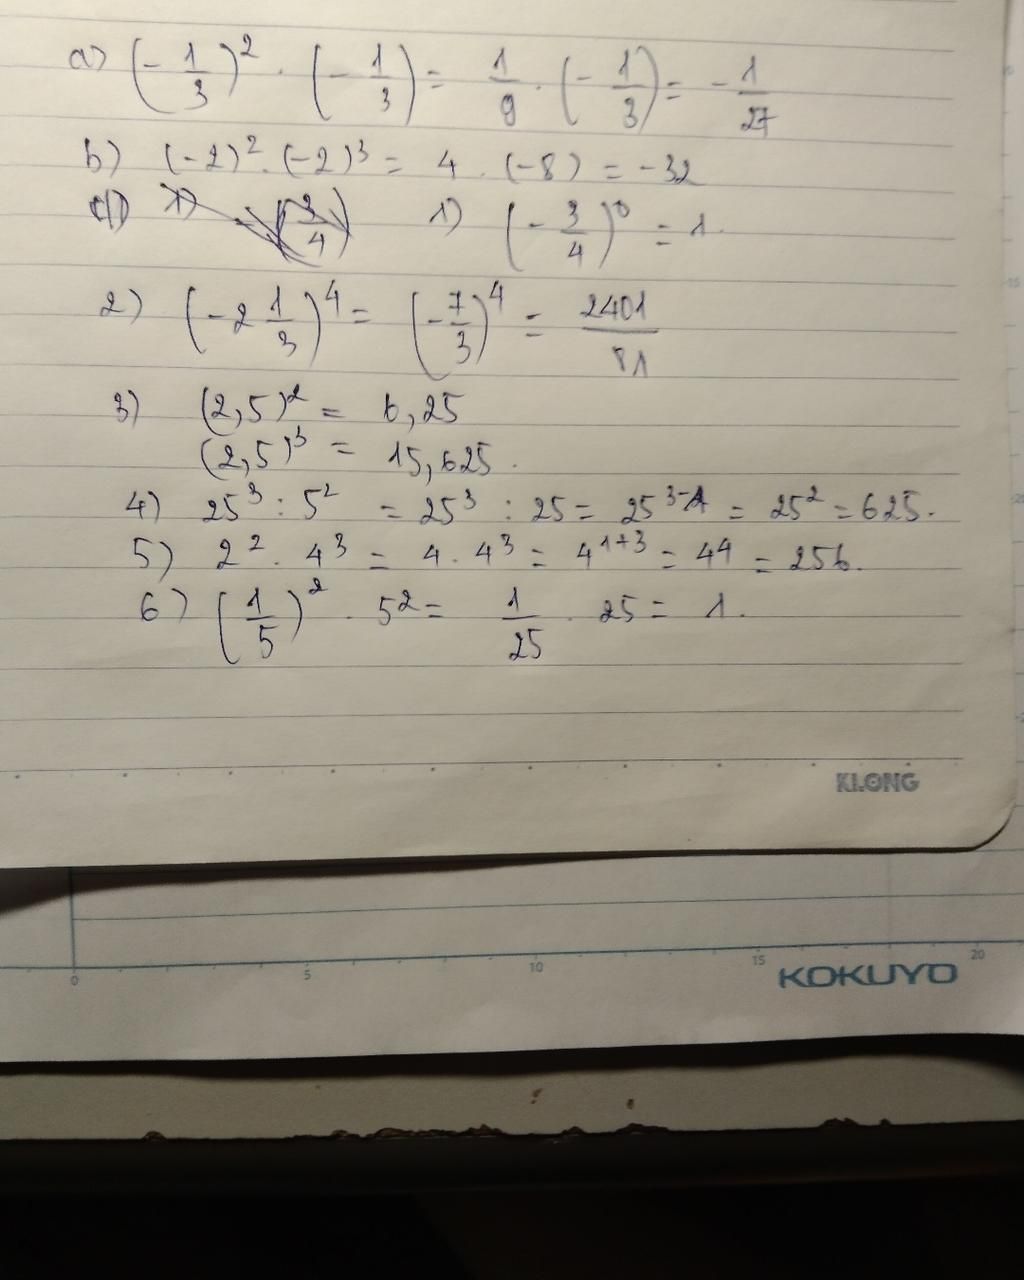 a) (-1/3)² . (-1/3) = 1/9 . (-1/3) = -1/27
b) (-2)² . (-2)³ = 4 . (-8) = -32
1) (-3/4)⁰ = 1.
2) (-2 1/3)⁴ = (-7/3)⁴ = 2401/81
3) (2,5)² = 6,25
(2,5)³ = 15,625.
4) 25³ : 5² = 25³ : 25 = 25³⁻¹ = 25² = 625.
5) 2² . 4³ = 4 . 4³ = 4¹⁺³ = 4⁴ = 256.
6) (1/5)² . 5² = 1/25 . 25 = 1.
KLONG
0 5 10 15 20
KOKUYO